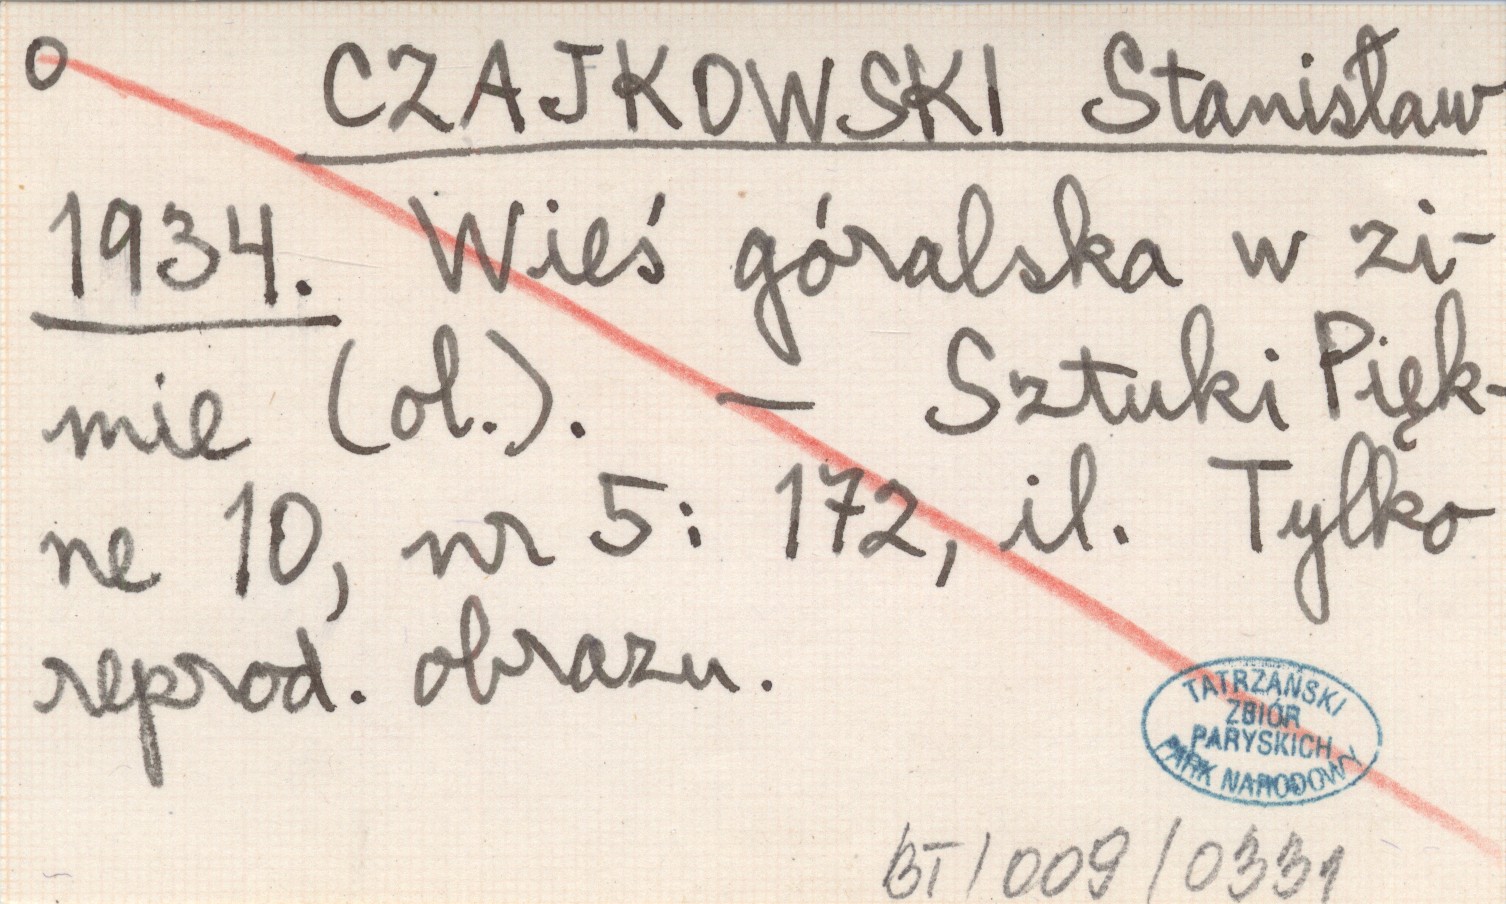 O CZAJKOWSKI Stanisław
1934. Wieś góralska w zi-
mie (ol.). — Sztuki Pięk-
ne 10, nr 5: 172, il. Tylko
reprod. obrazu.
TATRZAŃSKI
ZBIÓR
PARYSKICH
PARK NARODOWY
BT/009/0331